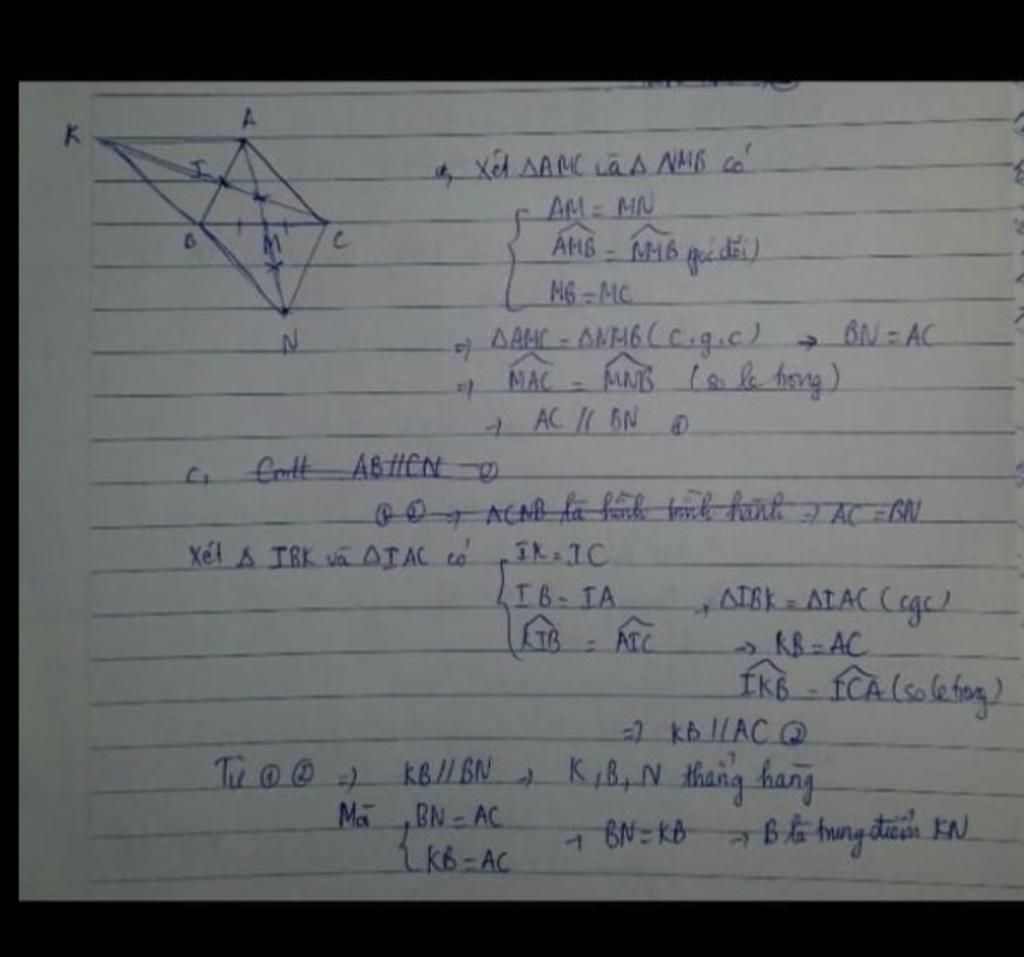 K A
I
B M C
N
a, Xét ΔAMC và Δ NMB có
AM = MN
AMB = NMB góc đối)
MB = MC
=> ΔAMC = ΔNMB ( C.g.c ) → BN = AC
=> MAC = MNB (so le trong)
→ AC // BN ①
c, Cmtt AB//CN ②
① ② => ACNB là hình bình hành => AC = BN
Xét Δ IBK và ΔIAC có IK = IC
IB = IA , ΔIBK = ΔIAC (cgc)
KIB = AIC → KB = AC
IKB = ICA (so le trong)
=> KB // AC ②
Từ ① ② => KB // BN → K, B, N thẳng hàng
Mà BN = AC → BN = KB → B là trung điểm KN
KB = AC